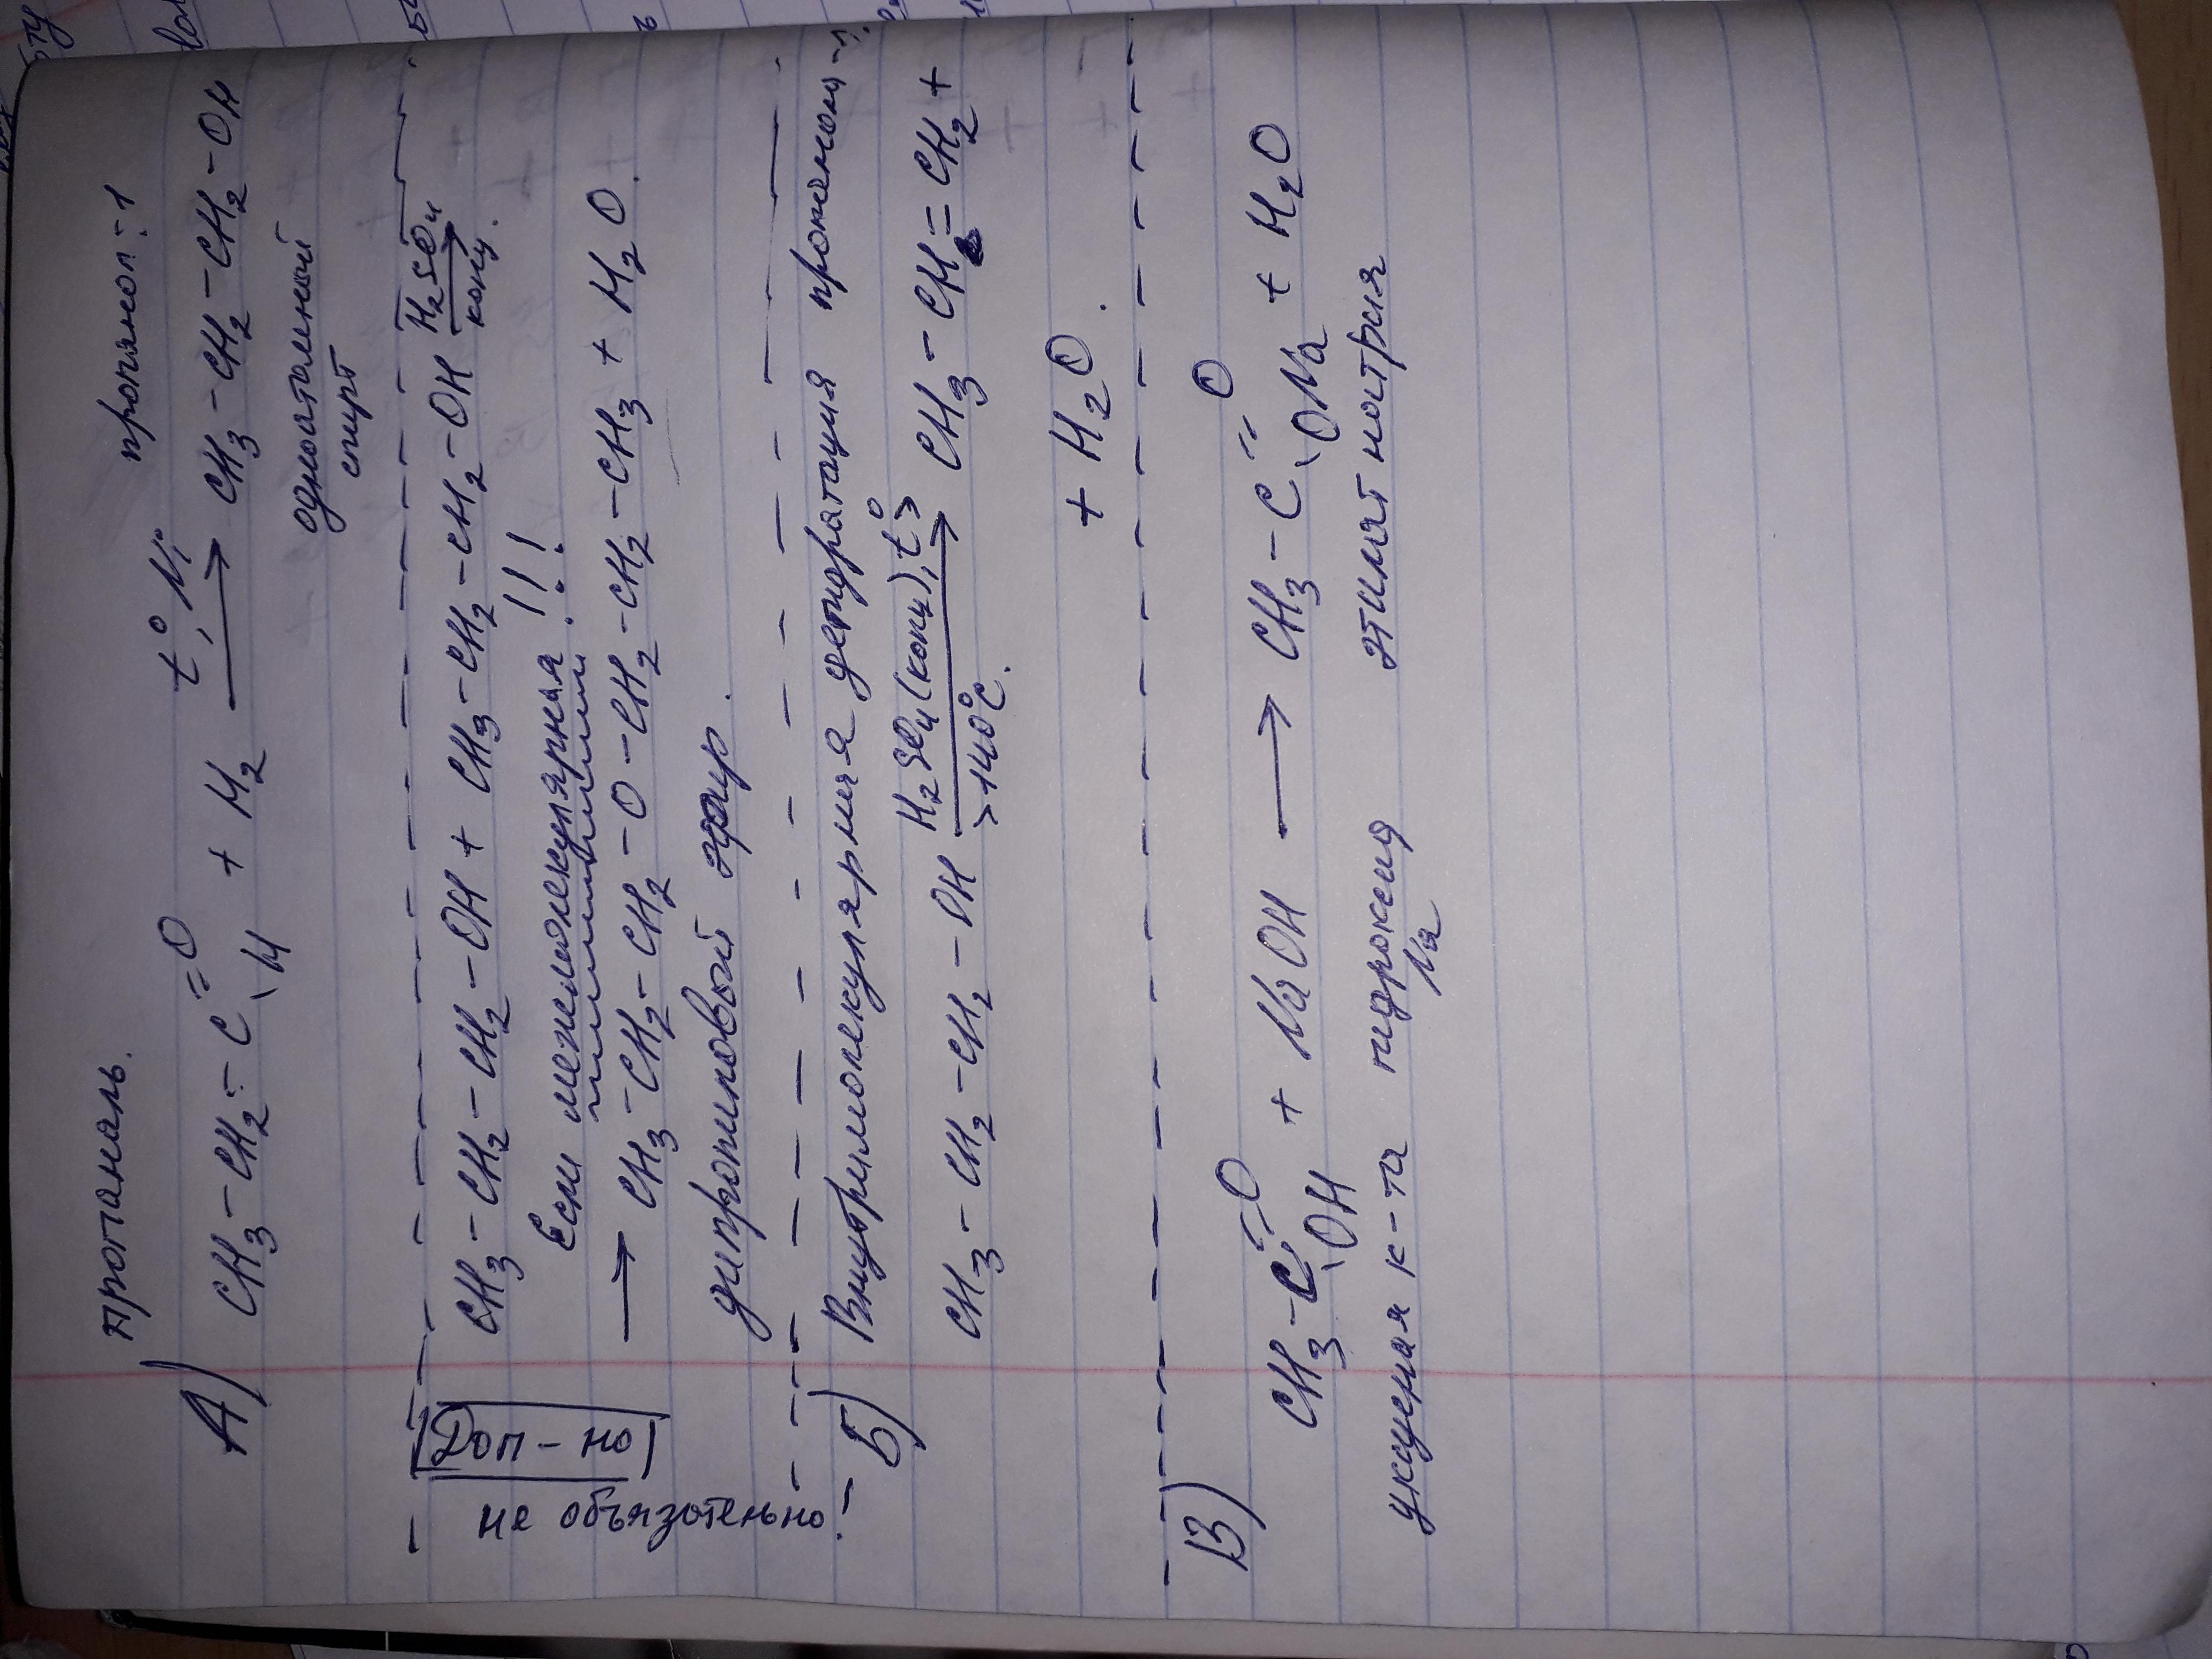 пропаналь. пропанол-1
А) CH₃-CH₂-C=O \H + H₂ t°, Ni → CH₃-CH₂-CH₂-OH
одноатомный
спирт
Доп-но
не обязательно.
CH₃-CH₂-CH₂-OH + CH₃-CH₂-CH₂-OH H₂SO₄ конц. →
Если межмолекулярная!!!
→ CH₃-CH₂-CH₂-O-CH₂-CH₂-CH₃ + H₂O.
дипропиловый эфир.
Б) Внутримолекулярная дегидратация
CH₃-CH₂-CH₂-OH H₂SO₄(конц), t°> >140°C. → CH₃-CH=CH₂ +
+ H₂O.
В) CH₃-C=O \OH + NaOH → CH₃-C=O \ONa + H₂O
уксусная к-та гидроксид этилат натрия
Na